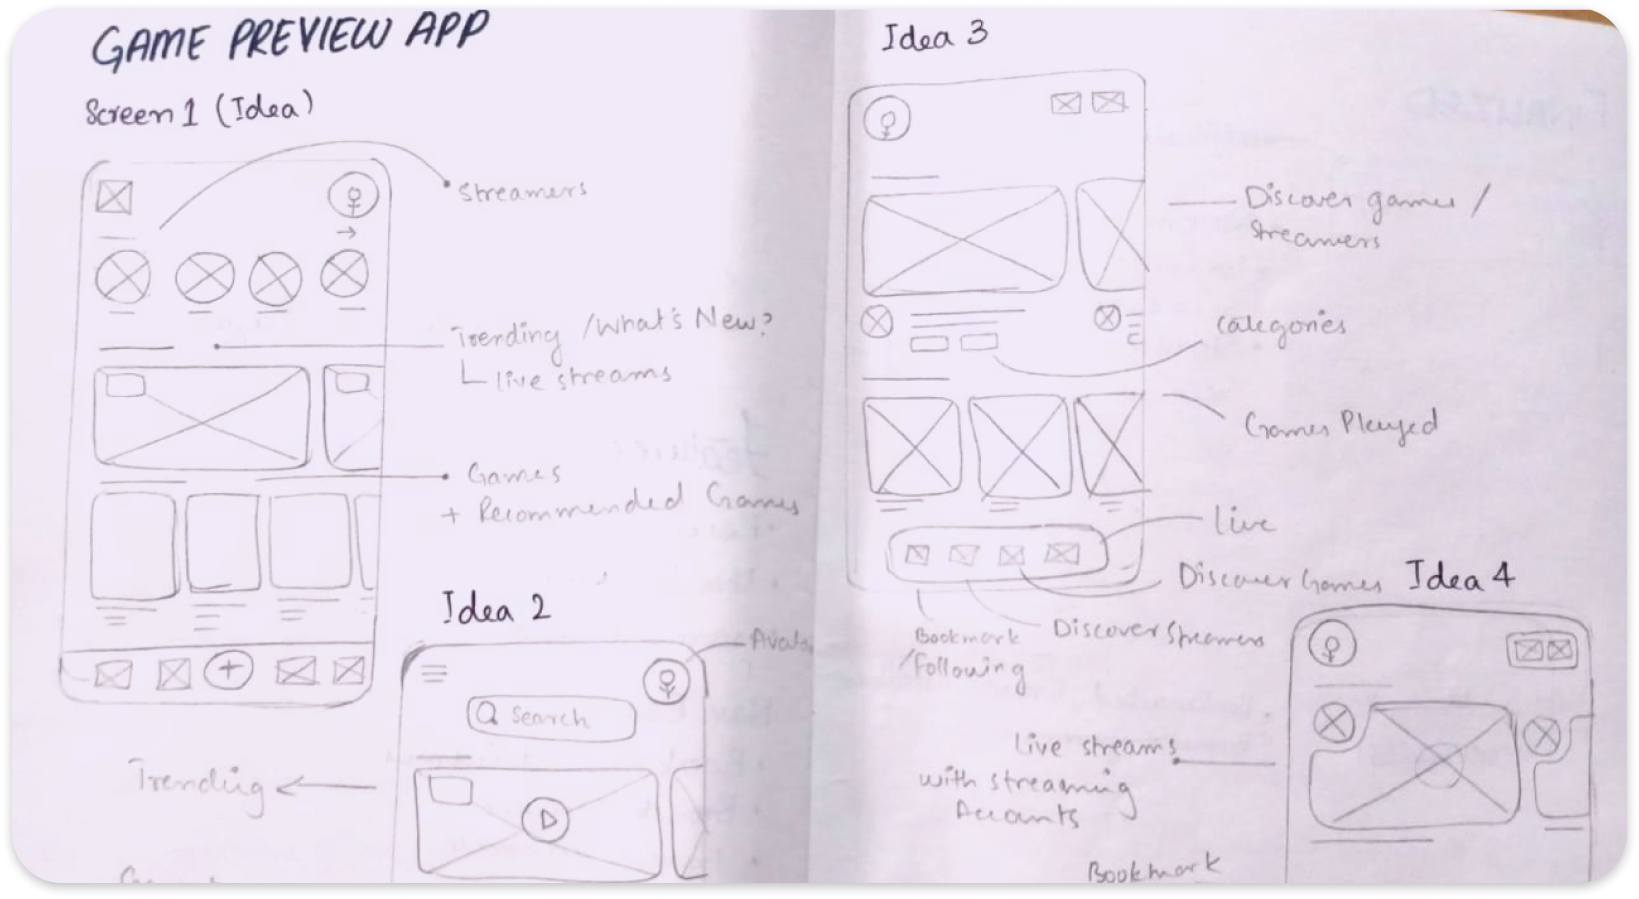 GAME PREVIEW APP
Screen 1 (Idea)
Streamers
Trending / What's New?
live streams
Games
+ Recommended Games
Idea 2
Avata
Search
Trending
Idea 3
Discover games /
Streamers
Categories
Games Played
Live
Discover Games
Discover Streamers
Bookmark
/Following
Idea 4
Live streams
with streaming
Accounts
Bookmark